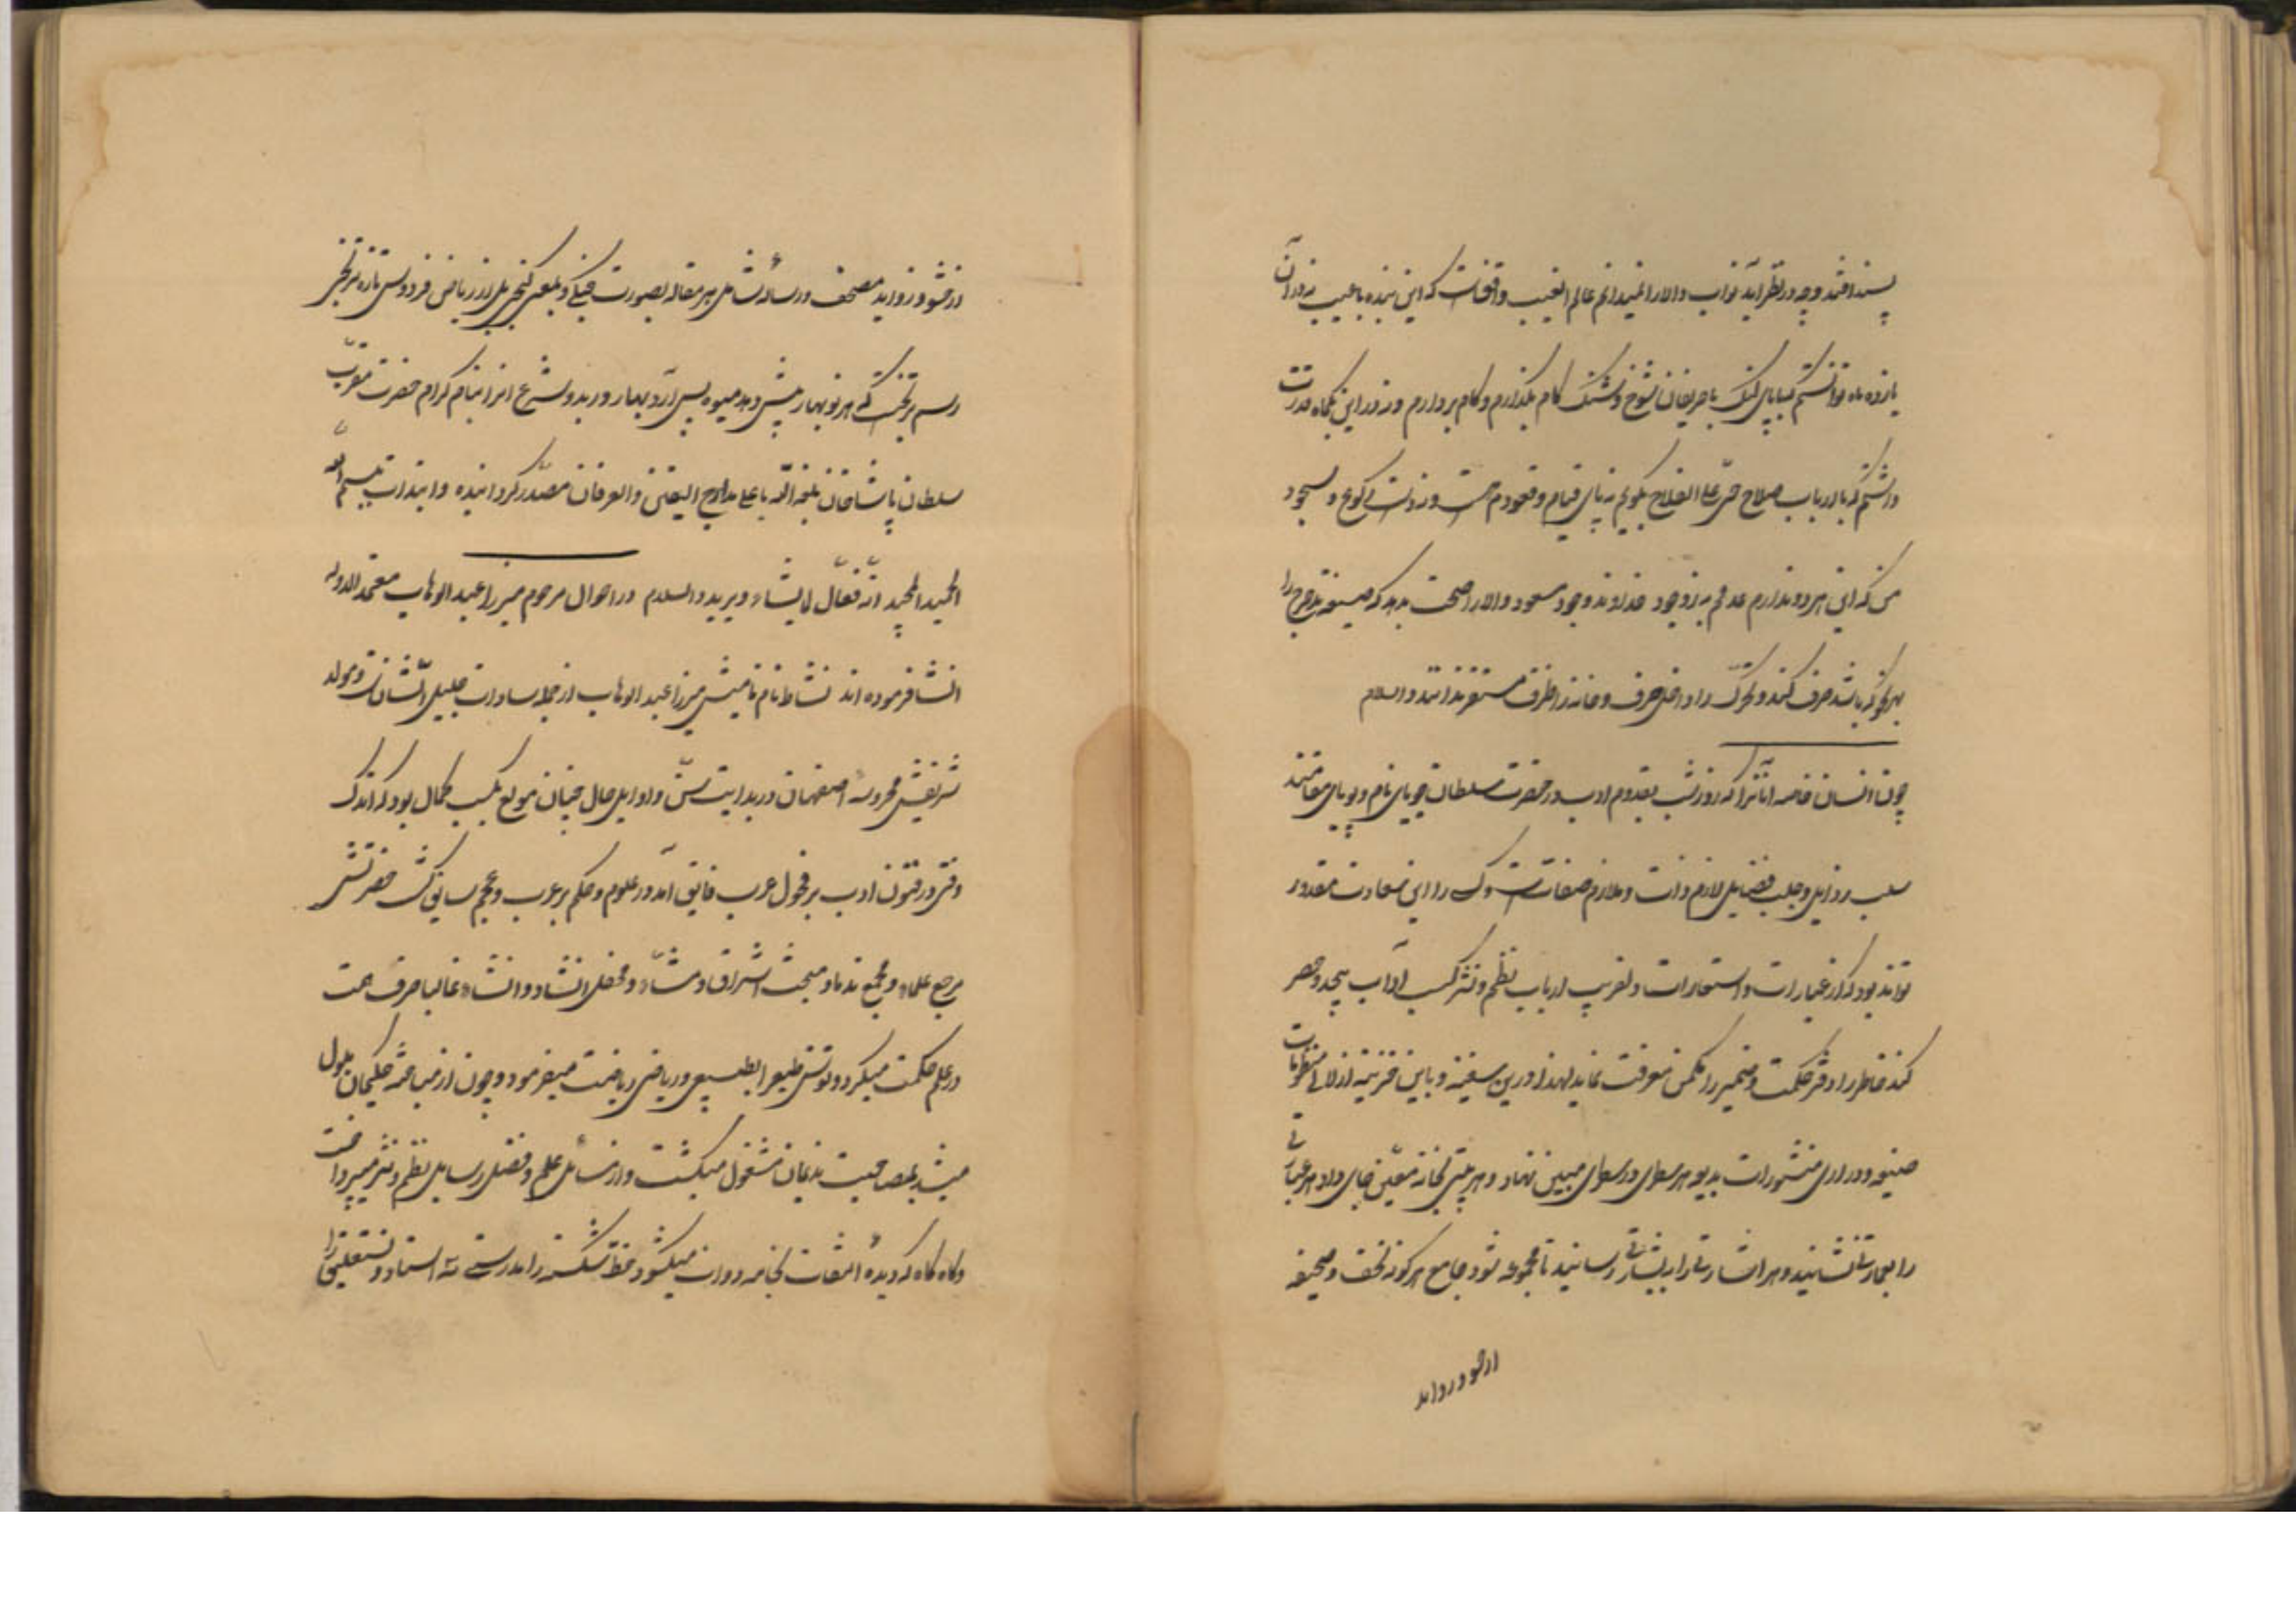 پسند افتد و چه در نظر آید نواب والا را نمیدانم عالم الغیب واقفست که این بنده با عیب نه در آن
یازده ماه توانستم که با پای لنگ با حریفان شوخ و شنگ گام بگذارم و کام بردارم و نه در این یکماه قدرت
داشتم که با ارباب صلاح حی علی الفلاح بگویم نه پای قیام و قعودم هست و نه دست رکوع و سجود
من که این هر دو ندارم عدمم به ز وجود خداوند وجود مسعود والا را صحت بدهد که صیغه تدحرج را
بهر نحو که باشد صرف کنند و تحرک را داخل صرف و خانه را ظرف مستقر ندانند والسلام
چون انسان خاصه آنانرا که روز و شب بقدوم ادب در حضرت سلطان جویای نام و پویای مقامند
سلب رذایل و جلب فضایل لازم ذات و ملازم صفاتست و کس را این سعادت مقدور
تواند بود که از عبارات و استعارات دلفریب ارباب نظم و نثر کسب آداب بیحد و حصر
کند خاطر را دفتر حکمت و ضمیر را مکمن معرفت نماید لهذا درین سفینه و باین قرینه از لالی منظومات
صنیعه و دراری منشورات بدیعه هر سطری در سطری مبین نهاد و هر بیتی بخانه معین جای داد هر عبارتی
را بعمارتی نشانید و هر اشارتی را به بشارتی رسانید تا مجموعه شود جامع هر گونه تحف و صحیفه
از حشو و زواید
از حشو و زواید مصحف و رساله شامل هر مقاله بصورت جنگی و بمعنی گنجی بل از ریاض فردوس تازه تر نخلی
رسم درختی که هر نو بهار پیش دهد میوه پس آرد بهار و ربد و شرع آنرا بنام گرام حضرت مقرب
سلطان پاشاخان بلغه الله باعلی مدارج الیقین و العرفان مصدر گردانیده و ابتدأت بسم الله
الحمید المجید انه فعال لما یشاء و یرید والسلام در احوال مرحوم میرزا عبدالوهاب معتمدالدوله
انشا فرموده‌اند نشاط نام نامیش میرزا عبدالوهاب از جمله سادات جلیل الشانست و مولد
شریفش محروسه اصفهان در بدایت سن و اوایل حال چنان مولع بکسب کمال بود که اندک
وقتی در فنون ادب بر فحول عرب فایق آمد و در علوم و حکم بر عرب و عجم سابق گشت حضرتش
مرجع علماء و مجمع ندما و مبحث اشراق و مشاء و محفل انشاد و انشاء غالبا صرف همت
در علم حکمت میکرد و توسن طبع را بطبیعی و ریاضی ریاضت میفرمود و چون از مباحثه حکیمان ملول
میشد بمصاحبت ندیمان مشغول میگشت و از مسائل علم و فضل برسایل نظم و نثر میپرداخت
و گاه گاه که دیده التفات بخامه و دوات میگشود خط شکسته را بدرستی سه استاد و نستعلیق را